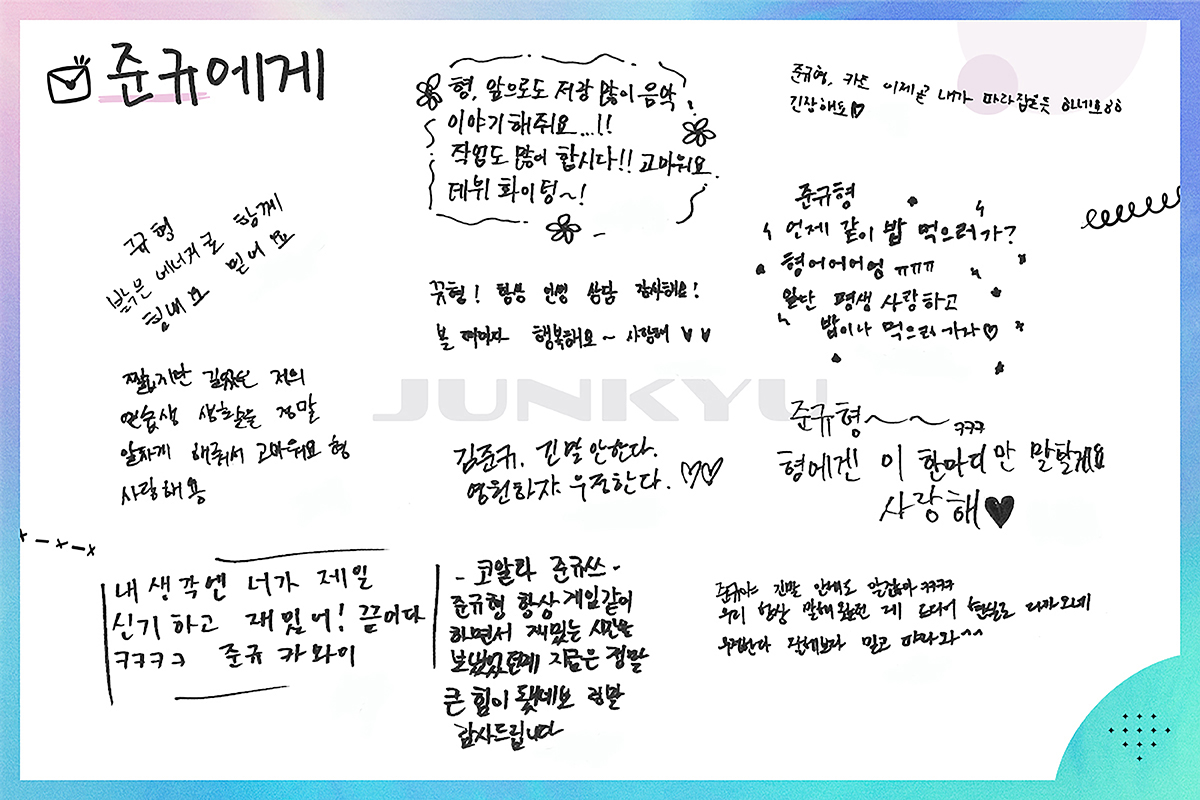 준규에게
형, 앞으로도 저랑 많이 음악
이야기 해줘요...!!
작업도 많이 합시다!! 고마워요.
데뷔 화이팅~!
준규형, 카트 이제 곧 내가 따라잡을듯 하네요ㅎㅎ
긴장해요♡
뀨형
밝은 에너지로 함께
힘내요 믿어요
준규형
언제 같이 밥 먹으러가?
형어어어엉 ㅠㅠㅠ
일단 평생 사랑하고
밥이나 먹으러 가자♡
뀨형! 항상 인생 상담 감사해요!
볼 때마다 행복해요~ 사랑해 ♥♥
짧지만 길었던 저의
연습생 생활을 정말
알차게 해줘서 고마워요 형
사랑해용
JUNKYU
김준규. 긴말안한다.
영원하자 우정한다. ♡♡
준규형~~ ㅋㅋㅋ
형에겐 이 한마디만 말할게요
사랑해♥
내 생각엔 너가 제일
신기하고 재밌어! 끝이다
ㅋㅋㅋㅋ 준규 카와이
- 코알라 준규쓰 -
준규형 항상 게임같이
하면서 재밌는 시간을
보냈었는데 지금은 정말
큰 힘이 됐네요 정말
감사드립니다
준규야 긴말 안해도 알잖아 ㅋㅋㅋㅋ
우리 항상 말해왔던 게 드디어 현실로 다가오네
밀고 따라와^^